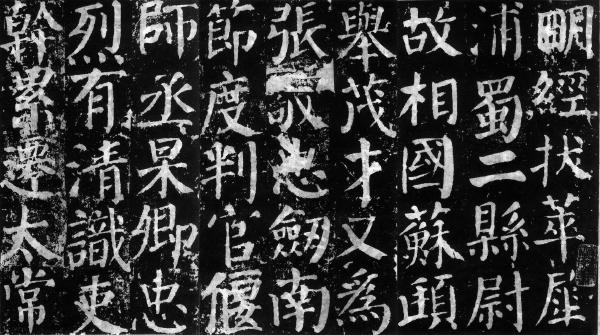 明經拔萃犀
浦蜀二縣尉
故相國蘇頲
舉茂才又爲
張敬忠劒南
節度判官偃
師丞杲卿忠
烈有清識吏
幹累遷太常